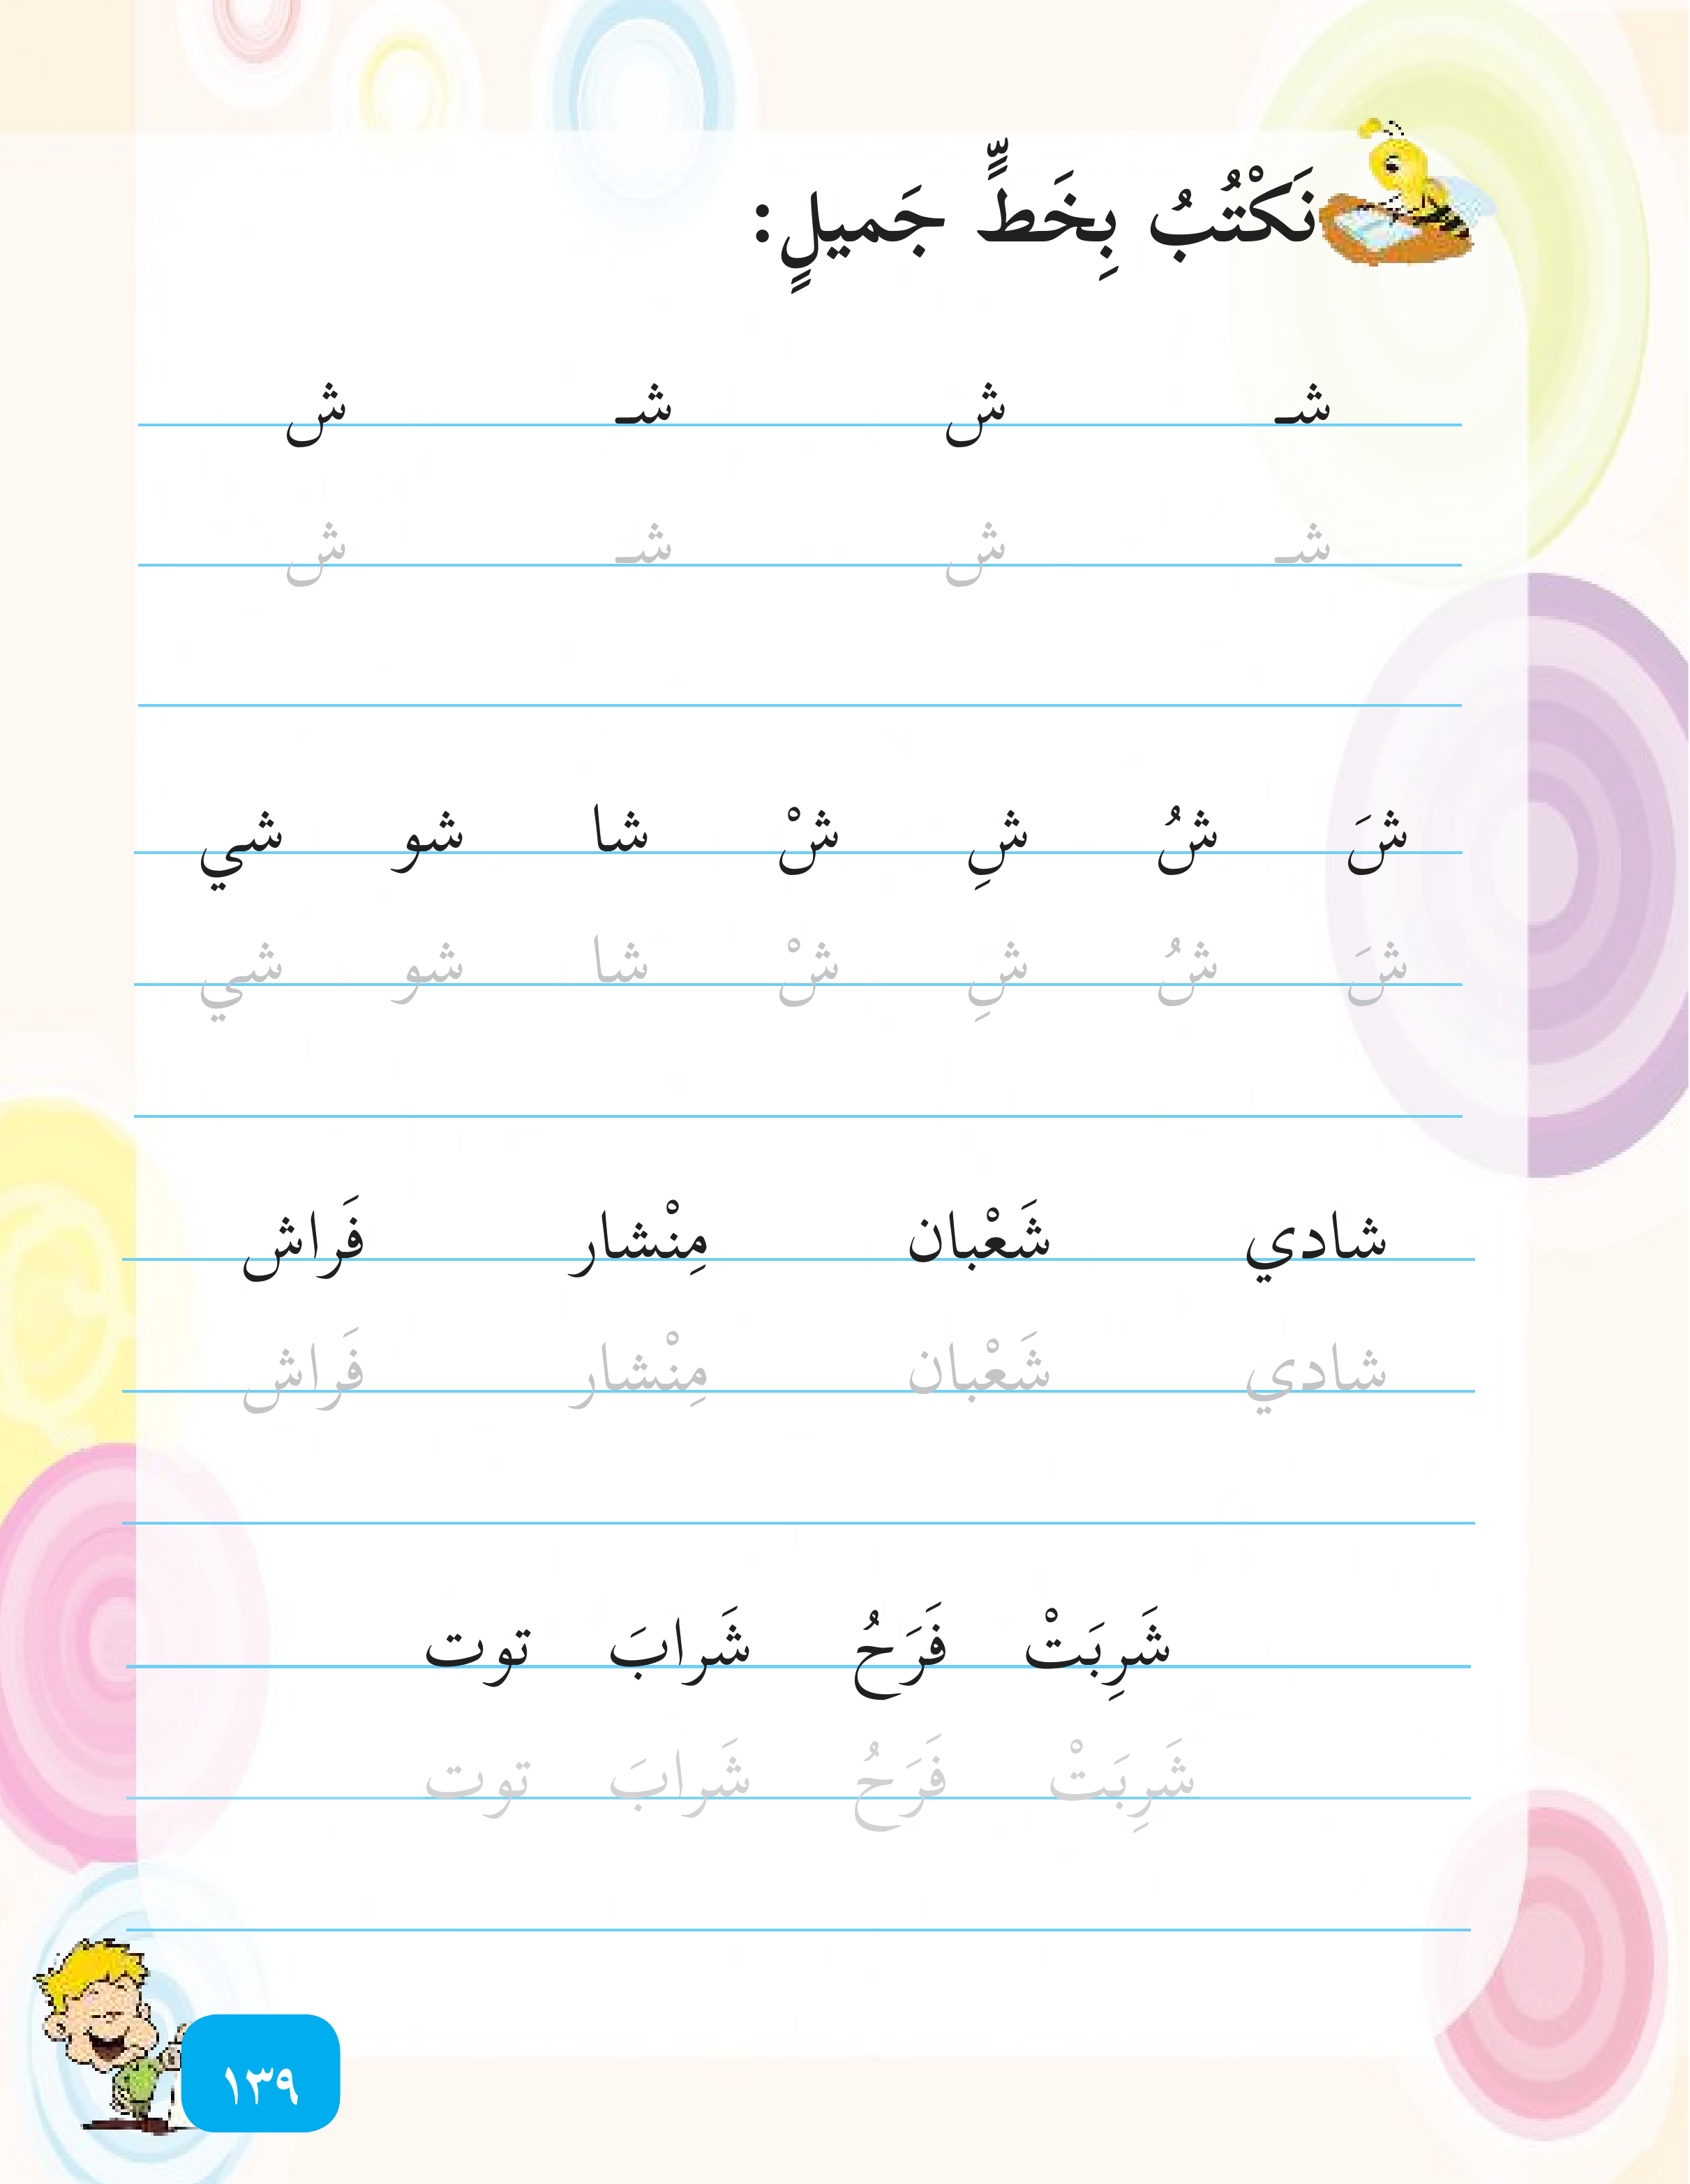 نَكْتُبُ بِخَطٍّ جَميلٍ:
شـ ش شـ ش
شـ ش شـ ش
شَ شُ شِ شْ شا شو شي
شَ شُ شِ شْ شا شو شي
شادي شَعْبان مِنْشار فَراش
شادي شَعْبان مِنْشار فَراش
شَرِبَتْ فَرَحُ شَرابَ توت
شَرِبَتْ فَرَحُ شَرابَ توت
١٣٩